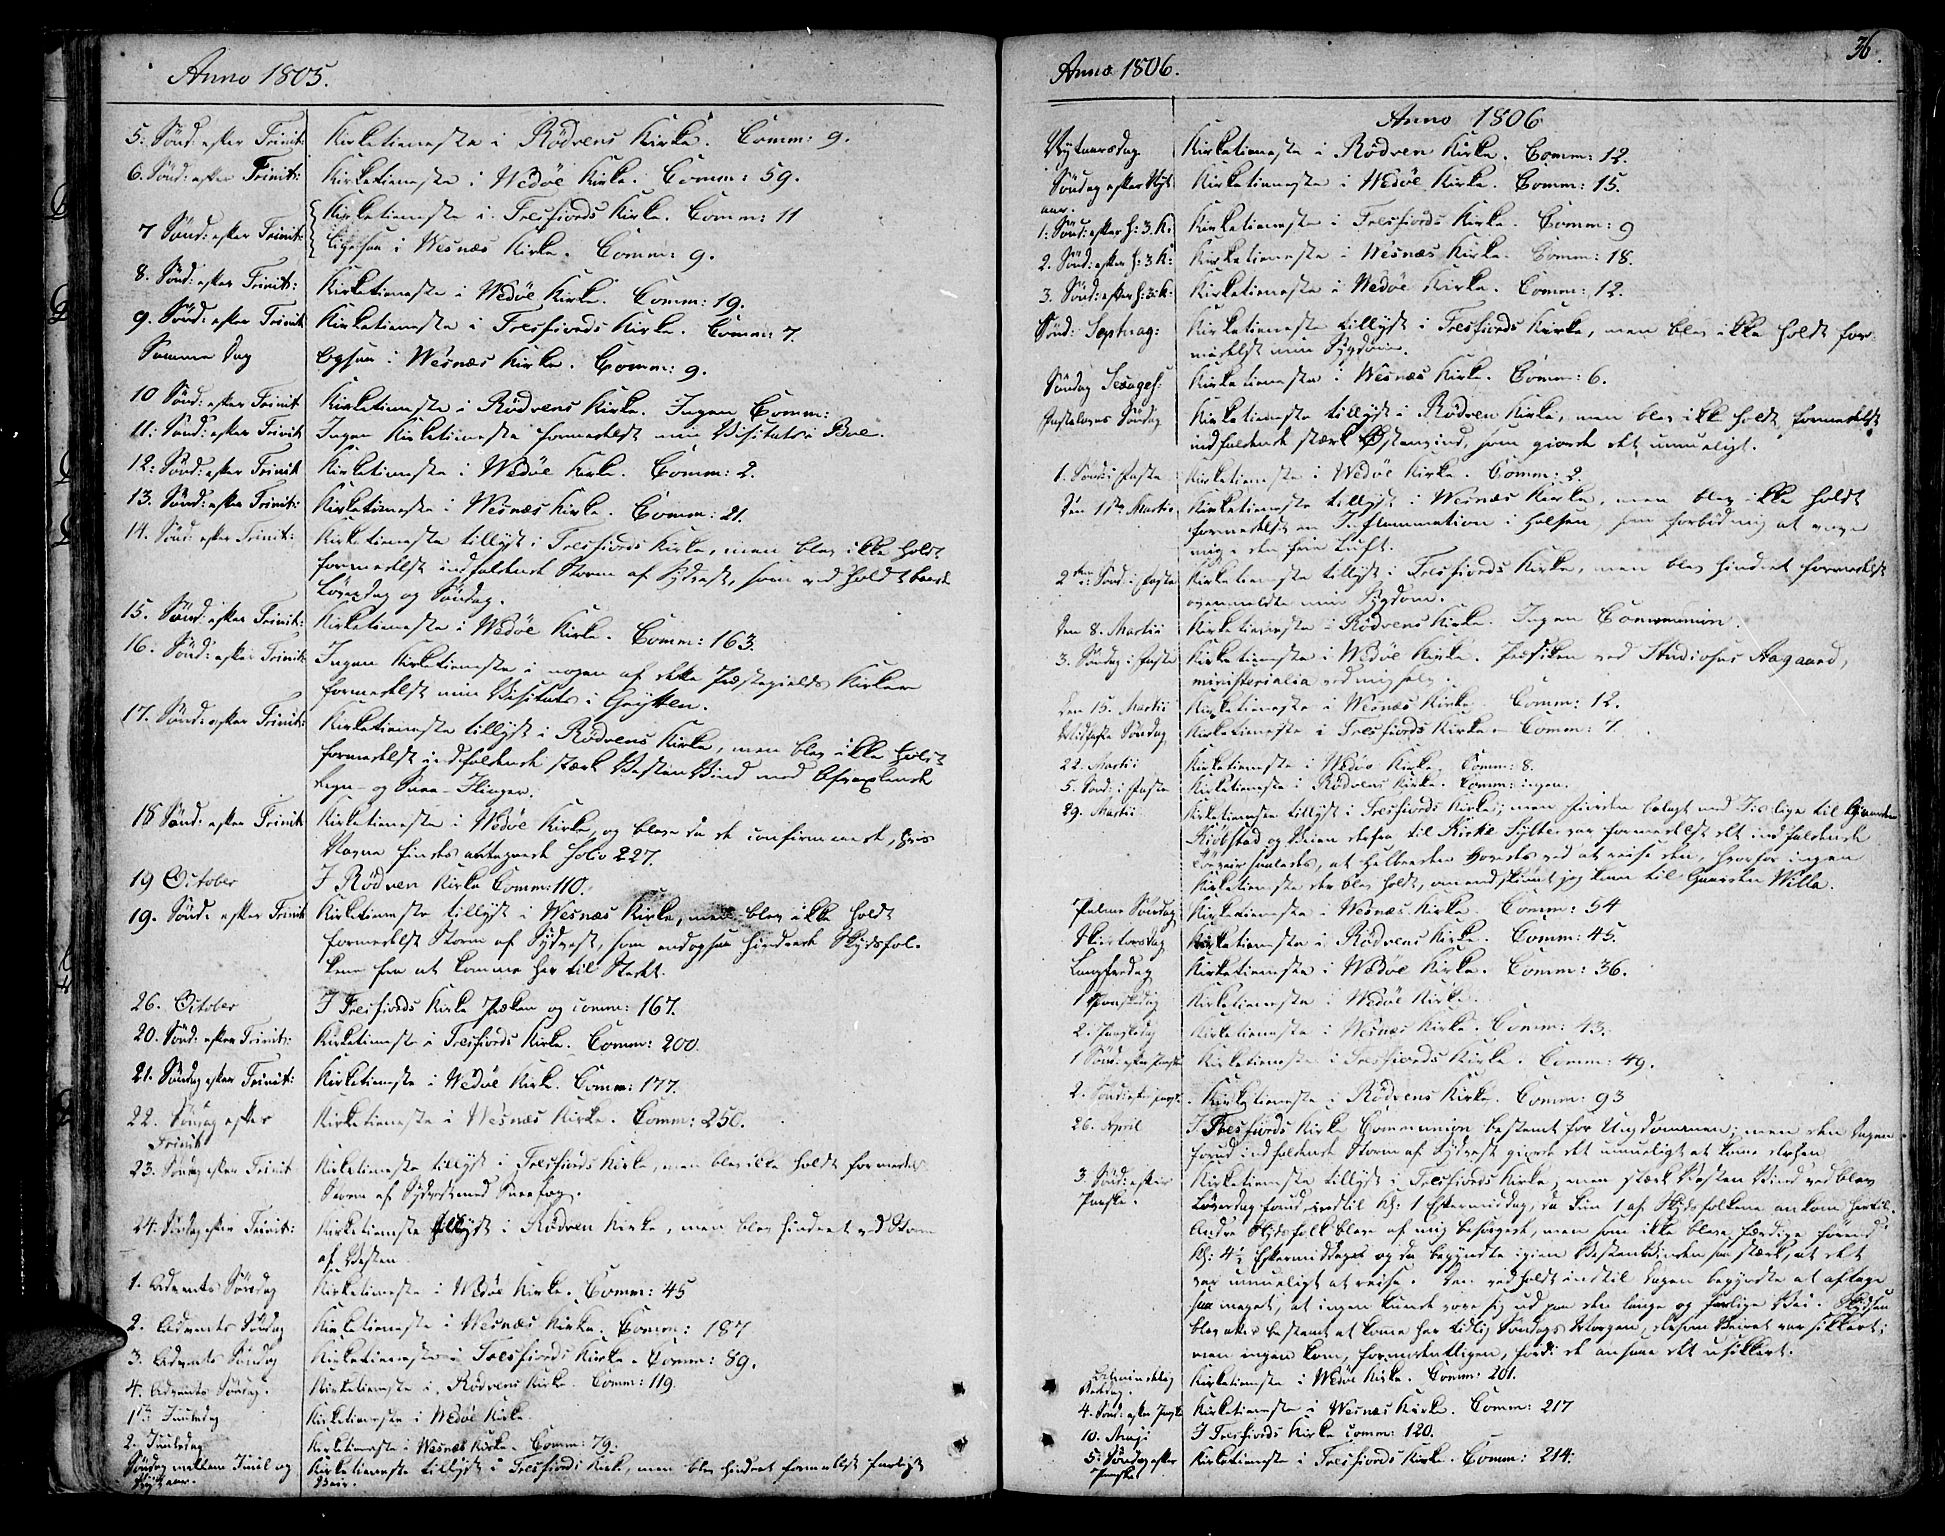 Anno 1805.
5. Sönd: efter Trinit: Kirketieneste i Rödvens Kirke. Comm: 9.
6. Sönd: efter Trinit: Kirketieneste i Wedöe Kirke. Comm: 59.
7 Sönd: efter Trinit: Kirketieneste i Tresfiords Kirke. Comm: 11
Ligesaa i Wesnæs Kirke. Comm: 9.
8. Sönd: efter Trinit: Kirketieneste i Wedöe Kirke. Comm: 19.
9. Sönd: efter Trinit Kirketieneste i Tresfiords Kirke. Comm: 7.
Samme Dag Ogsaa i Wesnæs Kirke. Comm: 9.
10 Sönd: efter Trinit Kirketieneste i Rödvens Kirke. Ingen Comm:
11: Sönd: efter Trinit Ingen Kirketieneste formedelst min Visitats i Boe.
12: Sönd: efter Trinit Kirketieneste i Wedöe Kirke. Comm: 2.
13. Sönd: efter Trinit: Kirketieneste i Wesnæs Kirke. Comm: 21.
14. Sönd: efter Trinit: Kirketieneste tillyst i Tresfiords Kirke, men blev ikke holdt
formedelst indfaldende Storm af Sydvest, som vedholdt baade
Löverdag og Söndag.
15. Sönd: efter Trinit: Kirketieneste i Wedöe Kirke. Comm: 163.
16. Sönd: efter Trinit: Ingen Kirketieneste i nogen af dette Præstegields Kirker
formedelst min Visitats i Grytten.
17. Sönd: efter Trinit: Kirketieneste tillyst i Rödvens Kirke, men blev ikke holdt
formedelst indfaldende stærk Vesten Vind med afvexlende
Regn- og Snee-Flinger.
18 Sönd: efter Trinit Kirketieneste i Wedöe Kirke, og bleve da de confirmerede, hvis
Navne findes antegnede folio 227.
19 October I Rödven Kirke Comm: 110.
19. Sönd: efter Trinit Kirketieneste tillyst i Wesnæs Kirke, men blev ikke holdt
formedelst Storm af Sydvest, som endogsaa hindrede Skydsfol-
kene fra at komme her til Stædet.
26. October I Tresfiords Kirke Præken og comm: 167.
20. Sönd: efter Trinit: Kirketieneste i Tresfiords Kirke. Comm: 200.
21. Söndag efter Trinit: Kirketieneste i Wedöe Kirke. Comm: 177.
22. Söndag efter Trinit Kirketieneste i Wesnæs Kirke. Comm: 250.
23. Söndag efter Trinit Kirketieneste tillyst i Tresfiords Kirke, men blev ikke holdt formedelst
Storm af Sydvest med Sneefog.
24. Söndag efter Trinit: Kirketieneste tillyst i Rödven Kirke, men blev hindret ved Storm
af Vesten.
1. Advents Söndag Kirketieneste i Wedöe Kirke. Comm: 45
2. Advents Söndag Kirketieneste i Wesnæs Kirke. Comm: 187
3. Advents Söndag Kirketieneste i Tresfiords Kirke. Comm: 89.
4. Advents Söndag. Kirketieneste i Rödvens Kirke. Comm: 119.
1ste Juuledag Kirketieneste i Wedöe Kirke.
2. Juuledag Kirketieneste i Wesnæs Kirke. Comm: 79.
Söndag mellem Juul og Nyt aar. Kirketieneste tillyst i Tresfiords Kirke, men blev hindret formedelst farligt
Veir.
36.
Anno 1806.
Anno 1806
Nytaarsdag Kirketieneste i Rödven Kirke. Comm: 12.
Söndag efter Nyt aar. Kirketieneste i Wedöe Kirke. Comm: 15.
1: Sönd: efter H: 3. K: Kirketieneste i Tresfiords Kirke. Comm: 9
2. Sönd: efter H: 3 K: Kirketieneste i Wesnæs Kirke. Comm: 18.
3. Sönd: efter H: 3: K: Kirketieneste i Wedöe Kirke. Comm: 12.
Sönd: Septuag: Kirketieneste tillyst i Tresfiords Kirke, men blev ikke holdt for-
medelst min Sygdom.
Söndag Sexages: Kirketieneste i Wesnæs Kirke. Comm: 6.
Fastelavns Söndag Kirketieneste tillyst i Rödven Kirke, men blev ikke holdt, formedelst
indfaldende stærk Östenvind, som giorde det umueligt.
1. Sönd: i Faste Kirketieneste i Wedöe Kirke. Comm: 2.
Den 1ste Martii Kirketieneste tillyst i Wesnæs Kirke, men blev ikke holdt
formedelst en Inflammation i Halsen, som forböd mig at vove
mig i den frie Luft.
2den Sönd: i Faste Kirketieneste tillyst i Tresfiords Kirke, men blev hindret formedelst
ovenmeldte min Sygdom.
Den 8. Martii Kirketieneste i Rödvens Kirke. Ingen Communion.
3. Söndag i Faste Kirketieneste i Wedöe Kirke. Prædiken ved Studiosus Aagaard,
ministerialia ved mig selv.
Den 15. Martii Kirketieneste i Wesnæs Kirke. Comm: 12.
Midfaste Söndag Kirketieneste i Tresfiords Kirke. Comm: 7
22. Martii Kirketieneste i Wedöe Kirke. Comm: 8.
5. Sönd: i Faste Kirketieneste i Rödvens Kirke. Comm: ingen.
29. Martii Kirketieneste tillyst i Tresfiords Kirke; men Fiorden belagt med Iis lige til
Kiöbstad og Veien derfra til Kirke Sylte var formedelst det indfaldende
Töeveir saaledes, at Helbreden vovedes ved at reise den, hvorfor ingen
Kirketieneste der blev holdt, omendskiönt jeg kom til Gaarden Willa.
Palme Söndag Kirketieneste i Wesnæs Kirke. Comm: 54
Skiertorsdag Kirketieneste i Rödvens Kirke. Comm: 45.
Langfredag Kirketieneste i Wedöe Kirke. Comm: 36.
1 Paaskedag Kirketieneste i Wedöe Kirke.
2. Paaskedag Kirketieneste i Wesnæs Kirke. Comm: 43.
1 Sönd: efter Paaske Kirketieneste i Tresfiords Kirke. Comm: 49.
2. Sönd: efter Paaske Kirketieneste i Rödvens Kirke. Comm: 93
26. April I Tresfiords Kirke Communion bestemt for Ungdommen; men den Dagen
forud indfaldende Storm af Sydvest giorde det umueligt at kome derhen
3. Sönd: efter Paaske. Kirketieneste tillyst i Tresfiords Kirke, men stærk Vesten Vind vedblev
Löverdag forud, indtil Kl: 1 Eftermiddag, da kun 1 af Skydsfolkene ankom hertil.
Andre Skydsfolk bleve af mig besörgede, men som ikke bleve færdige förend
Kl: 4½ Eftermiddag og da begyndte igien Vestenvinden saa stærk, at det
var umueligt at reise. Den vedholdt indtil Dagen begyndte at aftage
saa meget, at ingen kunde vove sig ud paa den lange og farlige Vei. Skydsen
blev atter bestemt at kome her tidlig Söndags Morgen, dersom Veiret var sikkert;
men ingen kom, formodentligen, fordi de ansaae det usikkert.
Almindelig Bededag. Kirketieneste i Wedöe Kirke. Comm: 201.
4. Sönd: efter Paaske Kirketieneste i Wesnæs Kirke. Comm: 217
10. Maji I Tresfiords Kirke comm: 120.
5. Söndag efter Paaske Kirketieneste i Tresfiords Kirke. Comm: 214.